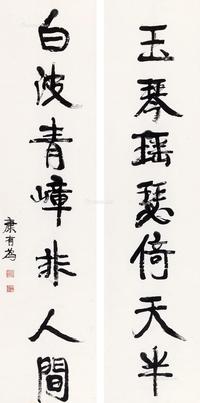 玉琴瑶瑟倚天半
白波青嶂非人間
康有為